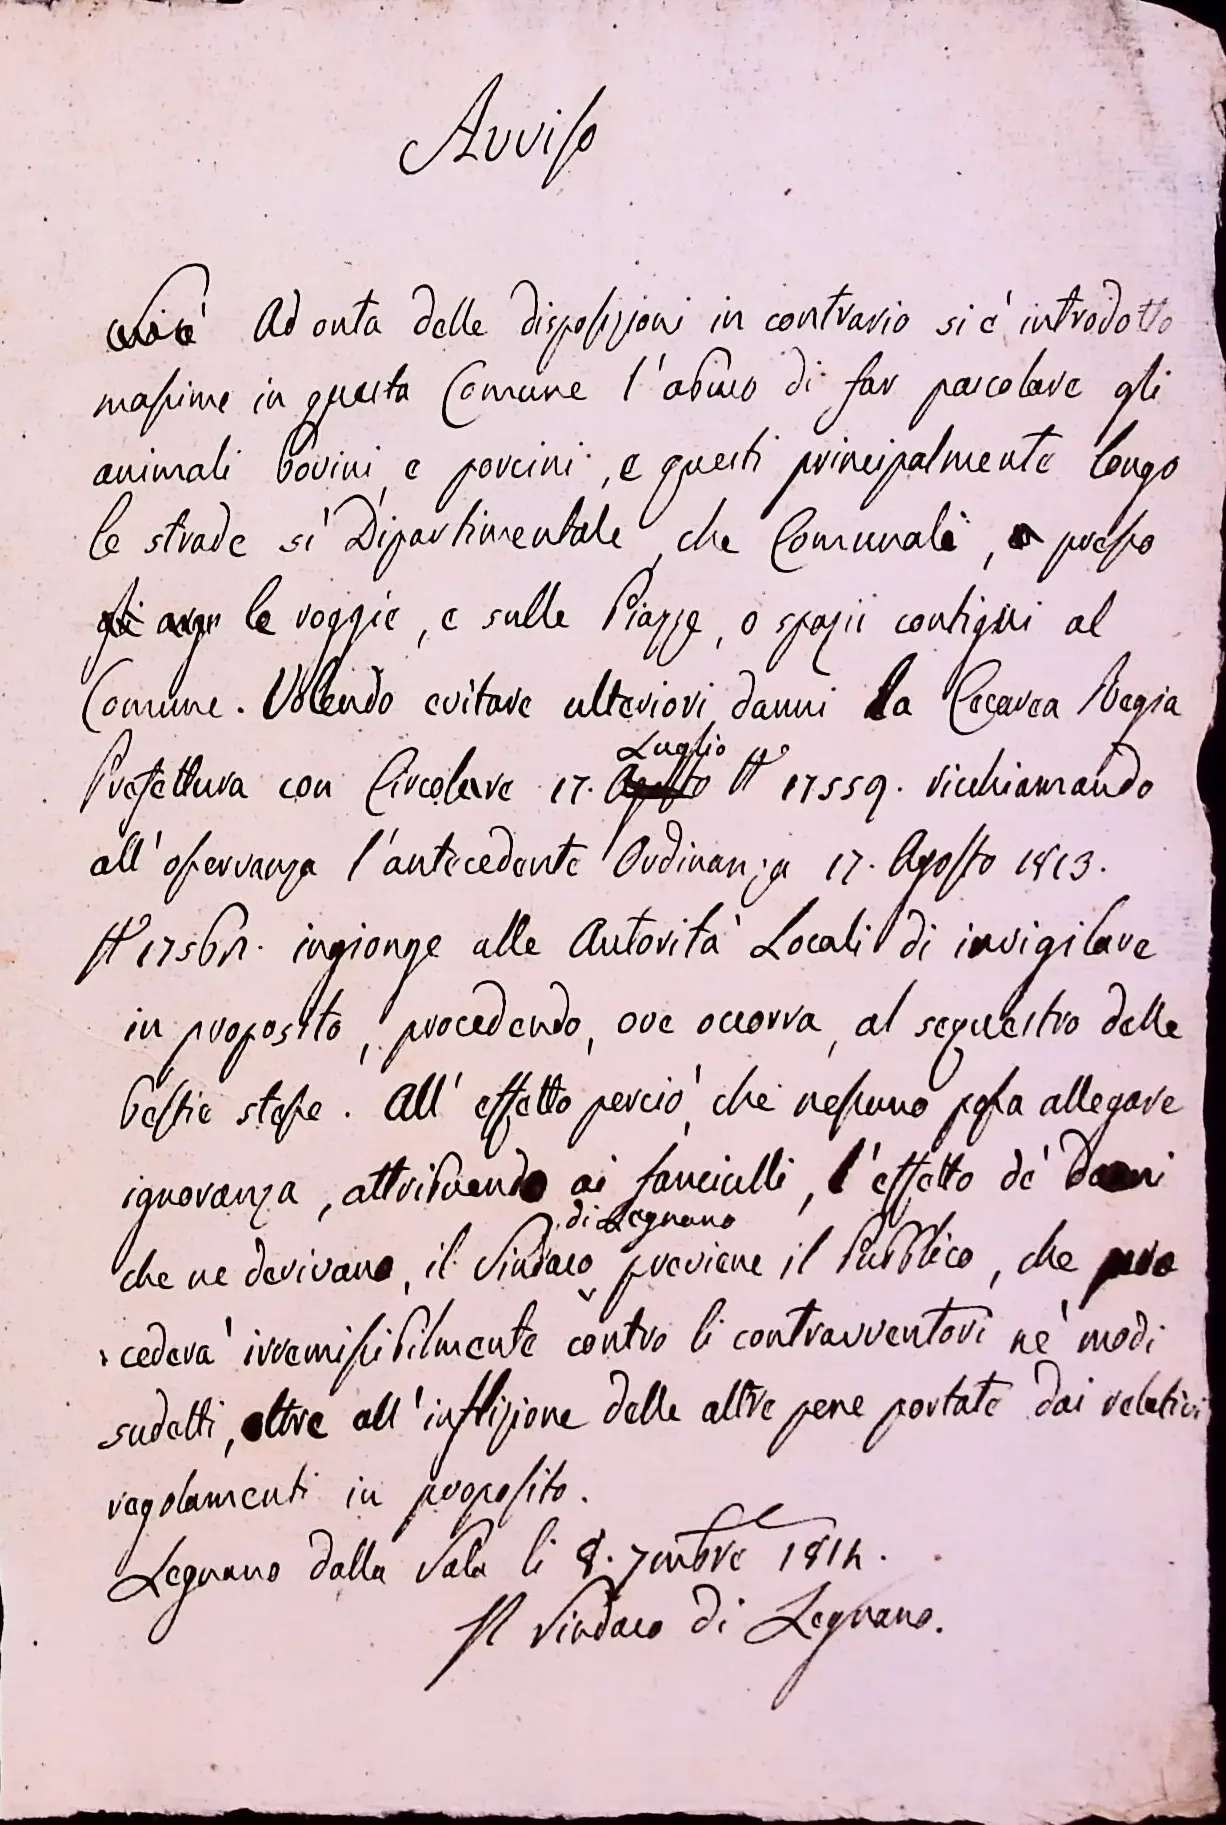 Avviso
Ad onta delle disposizioni in contrario si é introdotto
massime in questa Comune l'abuso di far pascolare gli
animali bovini e porcini, e questi principalmente longo
le strade sì Dipartimentale, che Comunali, o presso
le roggie, e sulle Piazze, o spazii contigui al
Comune. Volendo evitare ulteriori danni la Cesarea Regia
Luglio
Prefettura con Circolare 17. Agosto N° 17559. ricchiamando
all'osservanza l'antecedente Ordinanza 17. Agosto 1813.
ingionge alle Autorità Locali di invigilare
in proposito, procedendo, ove occorra, al sequestro delle
bestie stesse. All'effetto perciò, che nessuno possa allegare
ignoranza, attribuendo ai fanciulli, l'effetto de' danni
di Legnano
che ne derivano, il Sindaco previene il Pubblico, che pro
cederà irremisibilmente contro li contravventori ne' modi
sudetti, oltre all'inflizione delle altre pene portate dai relativi
regolamenti in proposito.
Legnano dalla Sala li 8. 7mbre 1814.
Il Sindaco di Legnano.